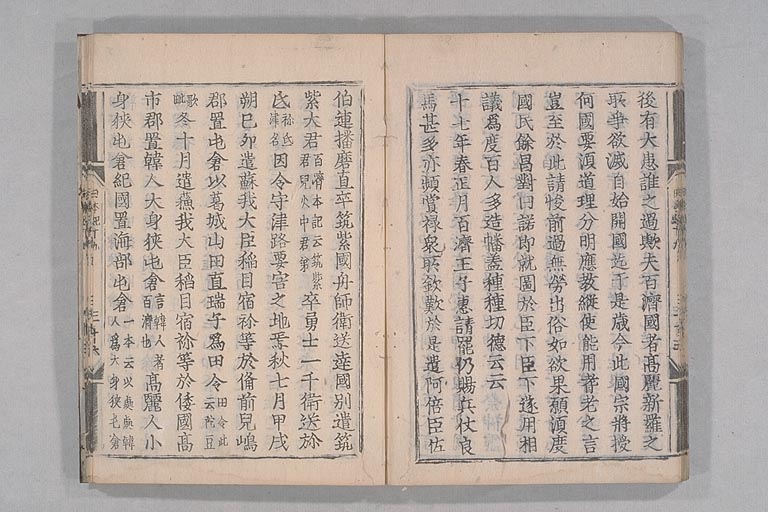 後有大患誰之過歟夫百濟國者髙麗新羅之
所爭欲滅自始開國迄于是歳今此國宗將授
何國要須道理分明應教縱使能用耆老之言
豈至於此請悛前過無勞出俗如欲果願須度
國民餘昌對曰諾即就圖於臣下臣下遂用相
議爲度百人多造幡蓋種種切德云云
十七年春正月百濟王子惠請罷仍賜兵仗良
馬甚多亦頻賞禄衆所欽歎於是遣阿倍臣佐
伯連播磨直卒筑紫國舟師衛送達國別遣筑
紫火君百濟本記云筑紫君兒火中君弟卒勇士一千衛送於
弖弥弖津名因令守津路要害之地焉秋七月甲戌
朔己夘遣蘇我大臣稲目宿祢等於俻前兒嶋
郡置屯倉以葛城山田直瑞子爲田令田令此云陀豆
歌毗冬十月遣蘇我大臣稲目宿祢等於倭國髙
市郡置韓人大身狹屯倉言韓人者百濟也髙麗人小
身狹屯倉紀國置海部屯倉一本云以處處韓人爲大身狹屯倉